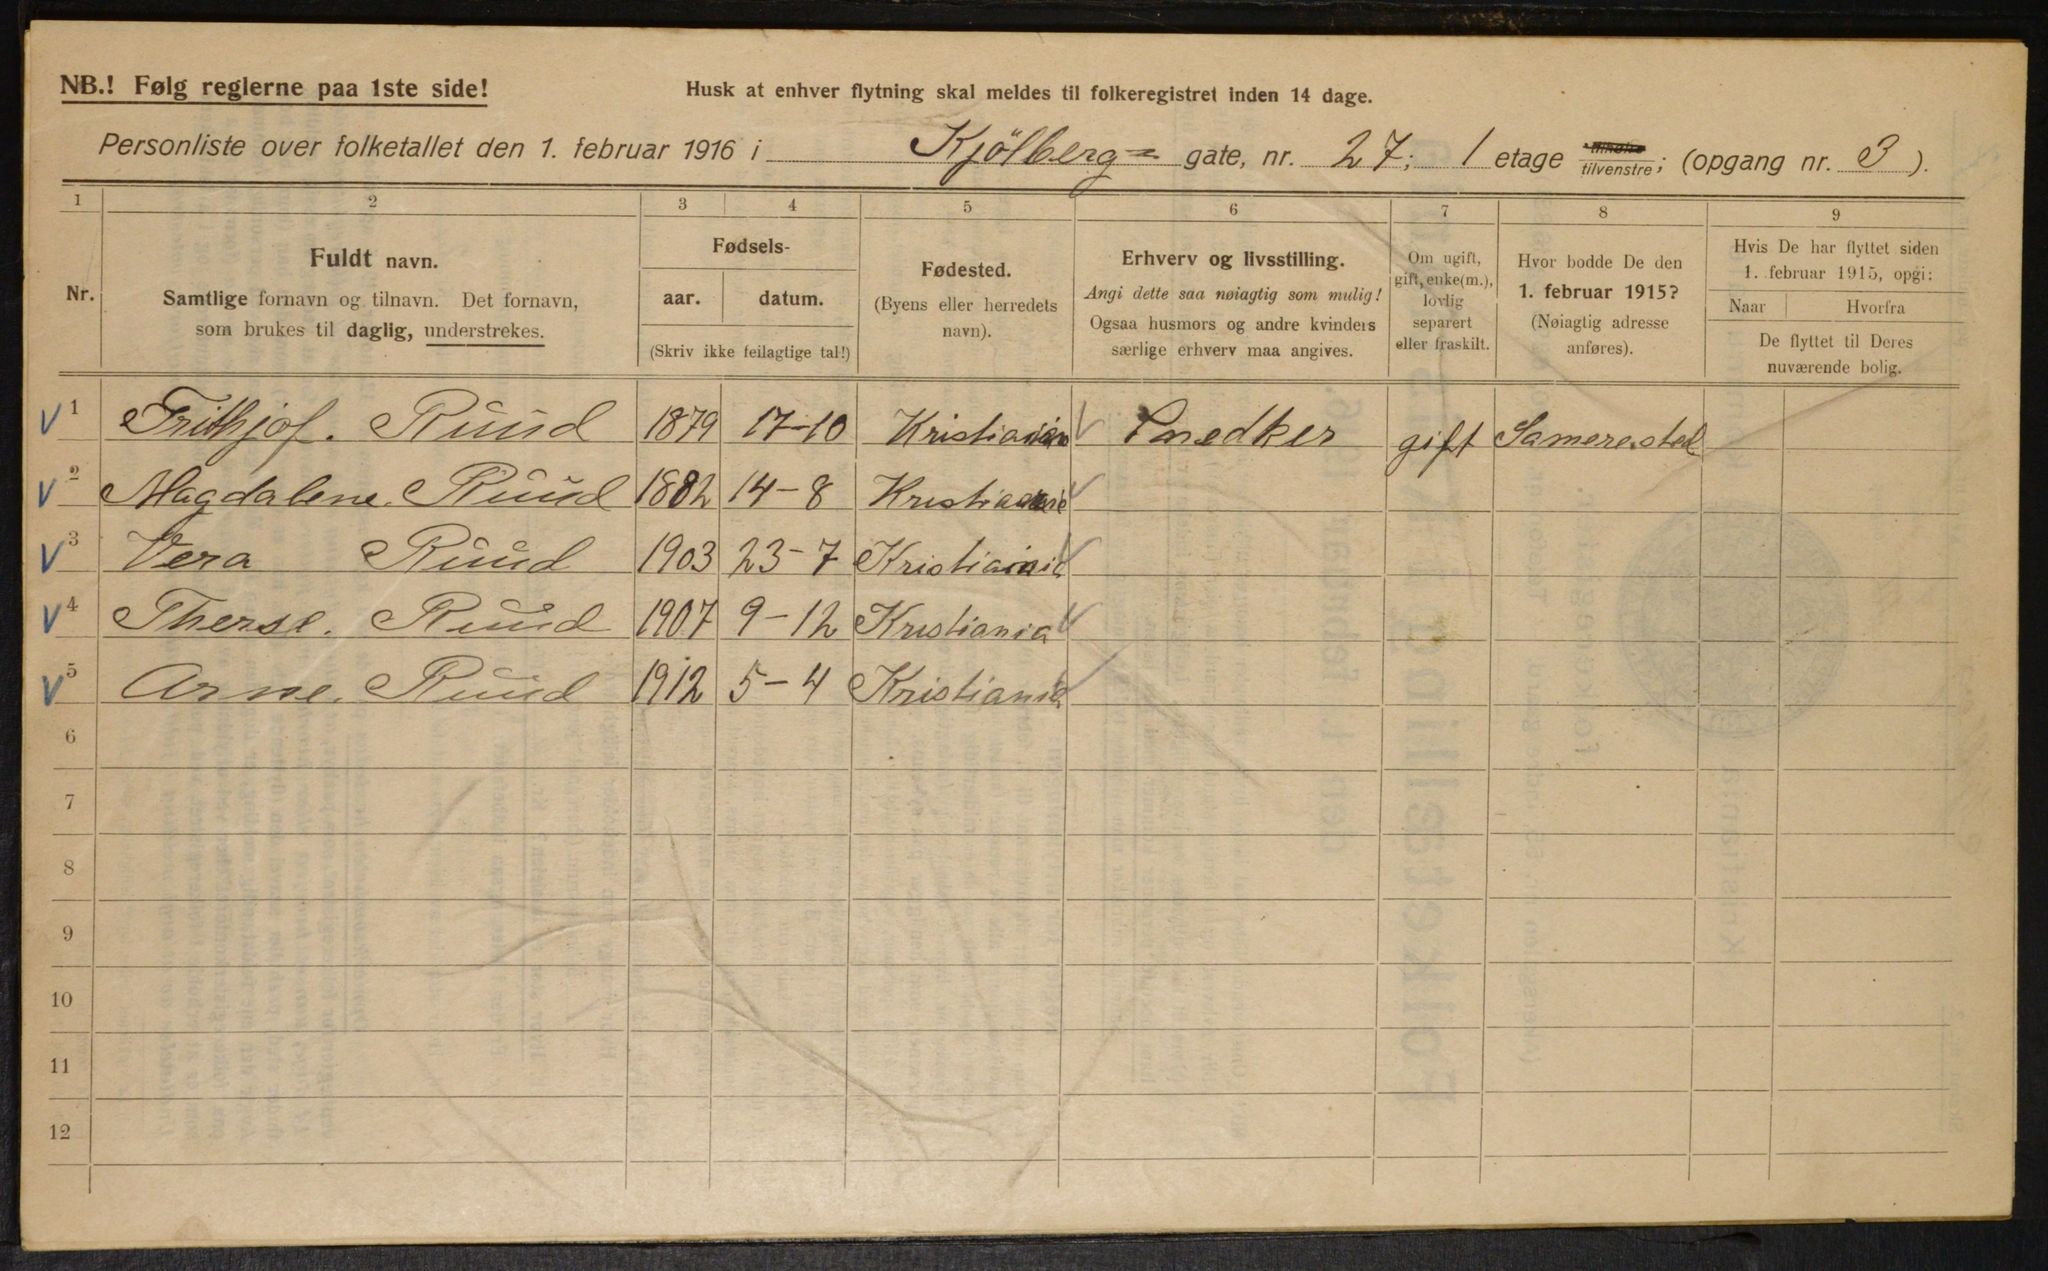 NB.! Følg reglerne paa 1ste side!
Husk at enhver flytning skal meldes til folkeregistret inden 14 dage.
Personliste over folketallet den 1. februar 1916 i Kjölberg= gate, nr. 27; 1 etage tilvenstre; (opgang nr. 3).
1 2 3 4 5 6 7 8 9
Nr.
Fuldt navn.
Samtlige fornavn og tilnavn. Det fornavn,
som brukes til daglig, understrekes.
Fødsels-
aar. datum.
(Skriv ikke feilagtige tal!)
Fødested.
(Byens eller herredets
navn).
Erhverv og livsstilling.
Angi dette saa nøiagtig som mulig!
Ogsaa husmors og andre kvinders
særlige erhverv maa angives.
Om ugift,
gift, enke(m.),
lovlig
separert
eller fraskilt.
Hvor bodde De den
1. februar 1915?
(Nøiagtig adresse
anføres).
Hvis De har flyttet siden
1. februar 1915, opgi:
Naar Hvorfra
De flyttet til Deres
nuværende bolig.
V 1 Frithjof. Ruud 1879 17-10 Kristiania Snedker gift Samme sted
V 2 Magdalene. Ruud 1882 14-8 Kristiania
V 3 Vera Ruud 1903 23-7 Kristiania
V 4 Therse. Ruud 1907 9-12 Kristiania
V 5 Arne. Ruud 1912 5-4 Kristiania
6
7
8
9
10
11
12